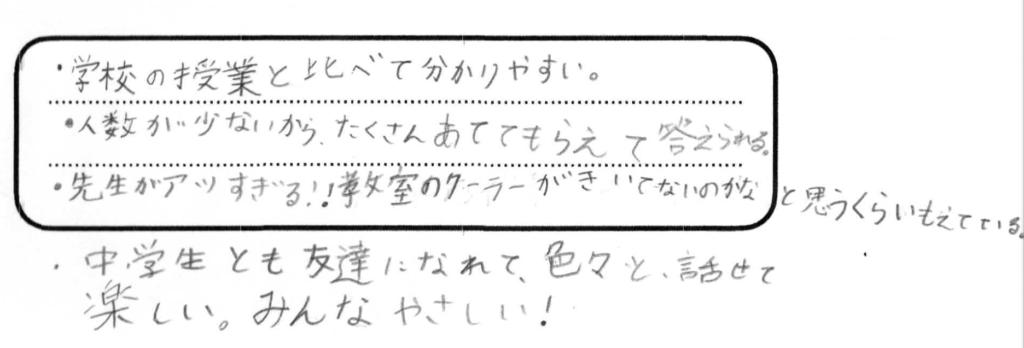 ・学校の授業と比べて分かりやすい。
・人数が少ないから、たくさんあててもらえて答えられる。
・先生がアツすぎる!!教室のクーラーがきいてないのかなと思うくらいもえている。
・中学生とも友達になれて、色々と、話せて
楽しい。みんなやさしい!